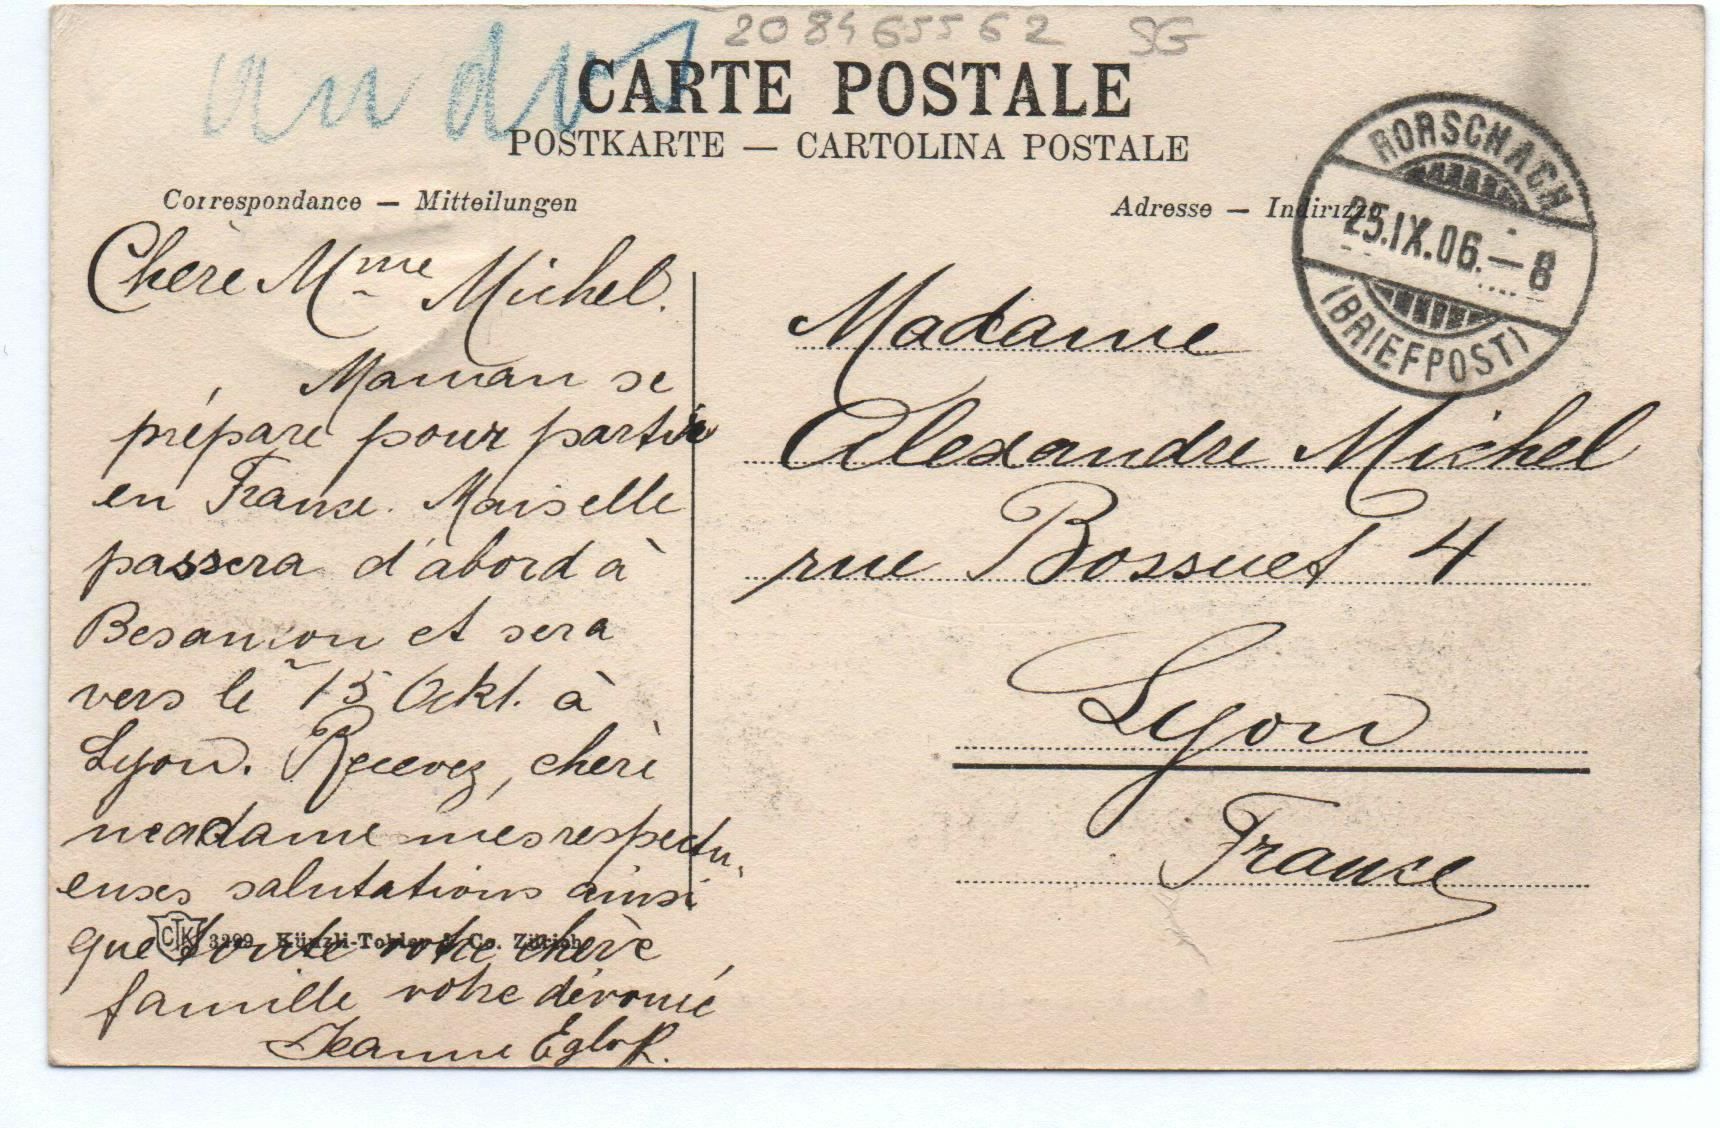 2084655562 SG
CARTE POSTALE
POSTKARTE — CARTOLINA POSTALE
Correspondance — Mitteilungen
Adresse — Indirizzo
RORSCHACH
25.IX.06.—8
(BRIEFPOST)
Chère Mme Michel.
Maman se
prépare pour partir
en France. Mais elle
passera d'abord à
Besançon et sera
vers le 15 Okt. à
Lyon. Recevez, chère
madame mes respectu-
euses salutations ainsi
que toute votre chère
famille votre dévouée
Jeanne
CTK 3299 Künzli-Tobler & Co. Zürich
Madame
Alexandre Michel
rue Bossuet 4
Lyon
France